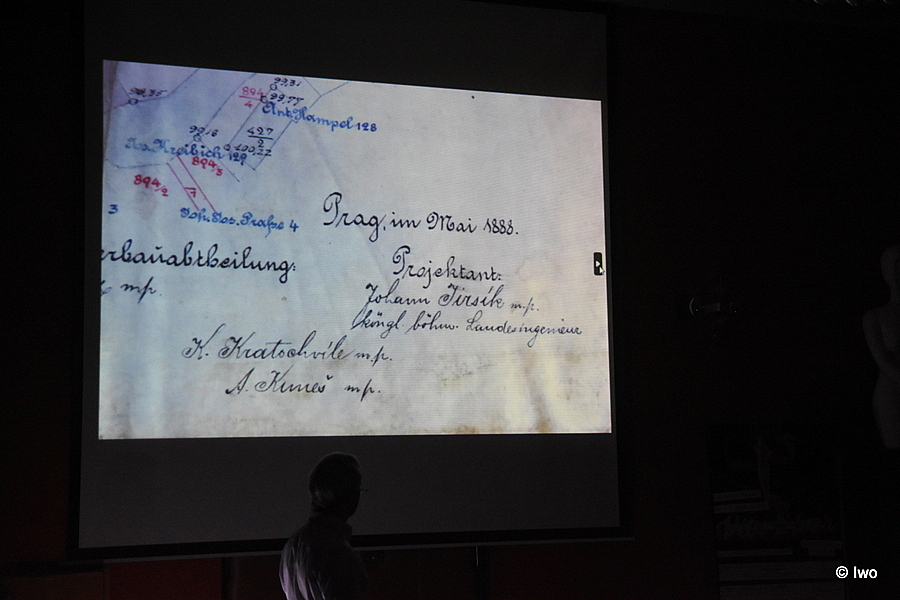 99,31
894/4 99,77
Ant. Hampel 128
99,16
427/2
Jos. Kreibich 129
894/3
894/2
3
Joh. Jos. 4
Prag, im Mai 1888.
rbauabtheilung:
Projektant:
mp.
Johann Jirsík m.p.
köngl. böhm. Landesingenieur
K. Kratschvíle m.p.
A. Kuneš mp.
© Iwo